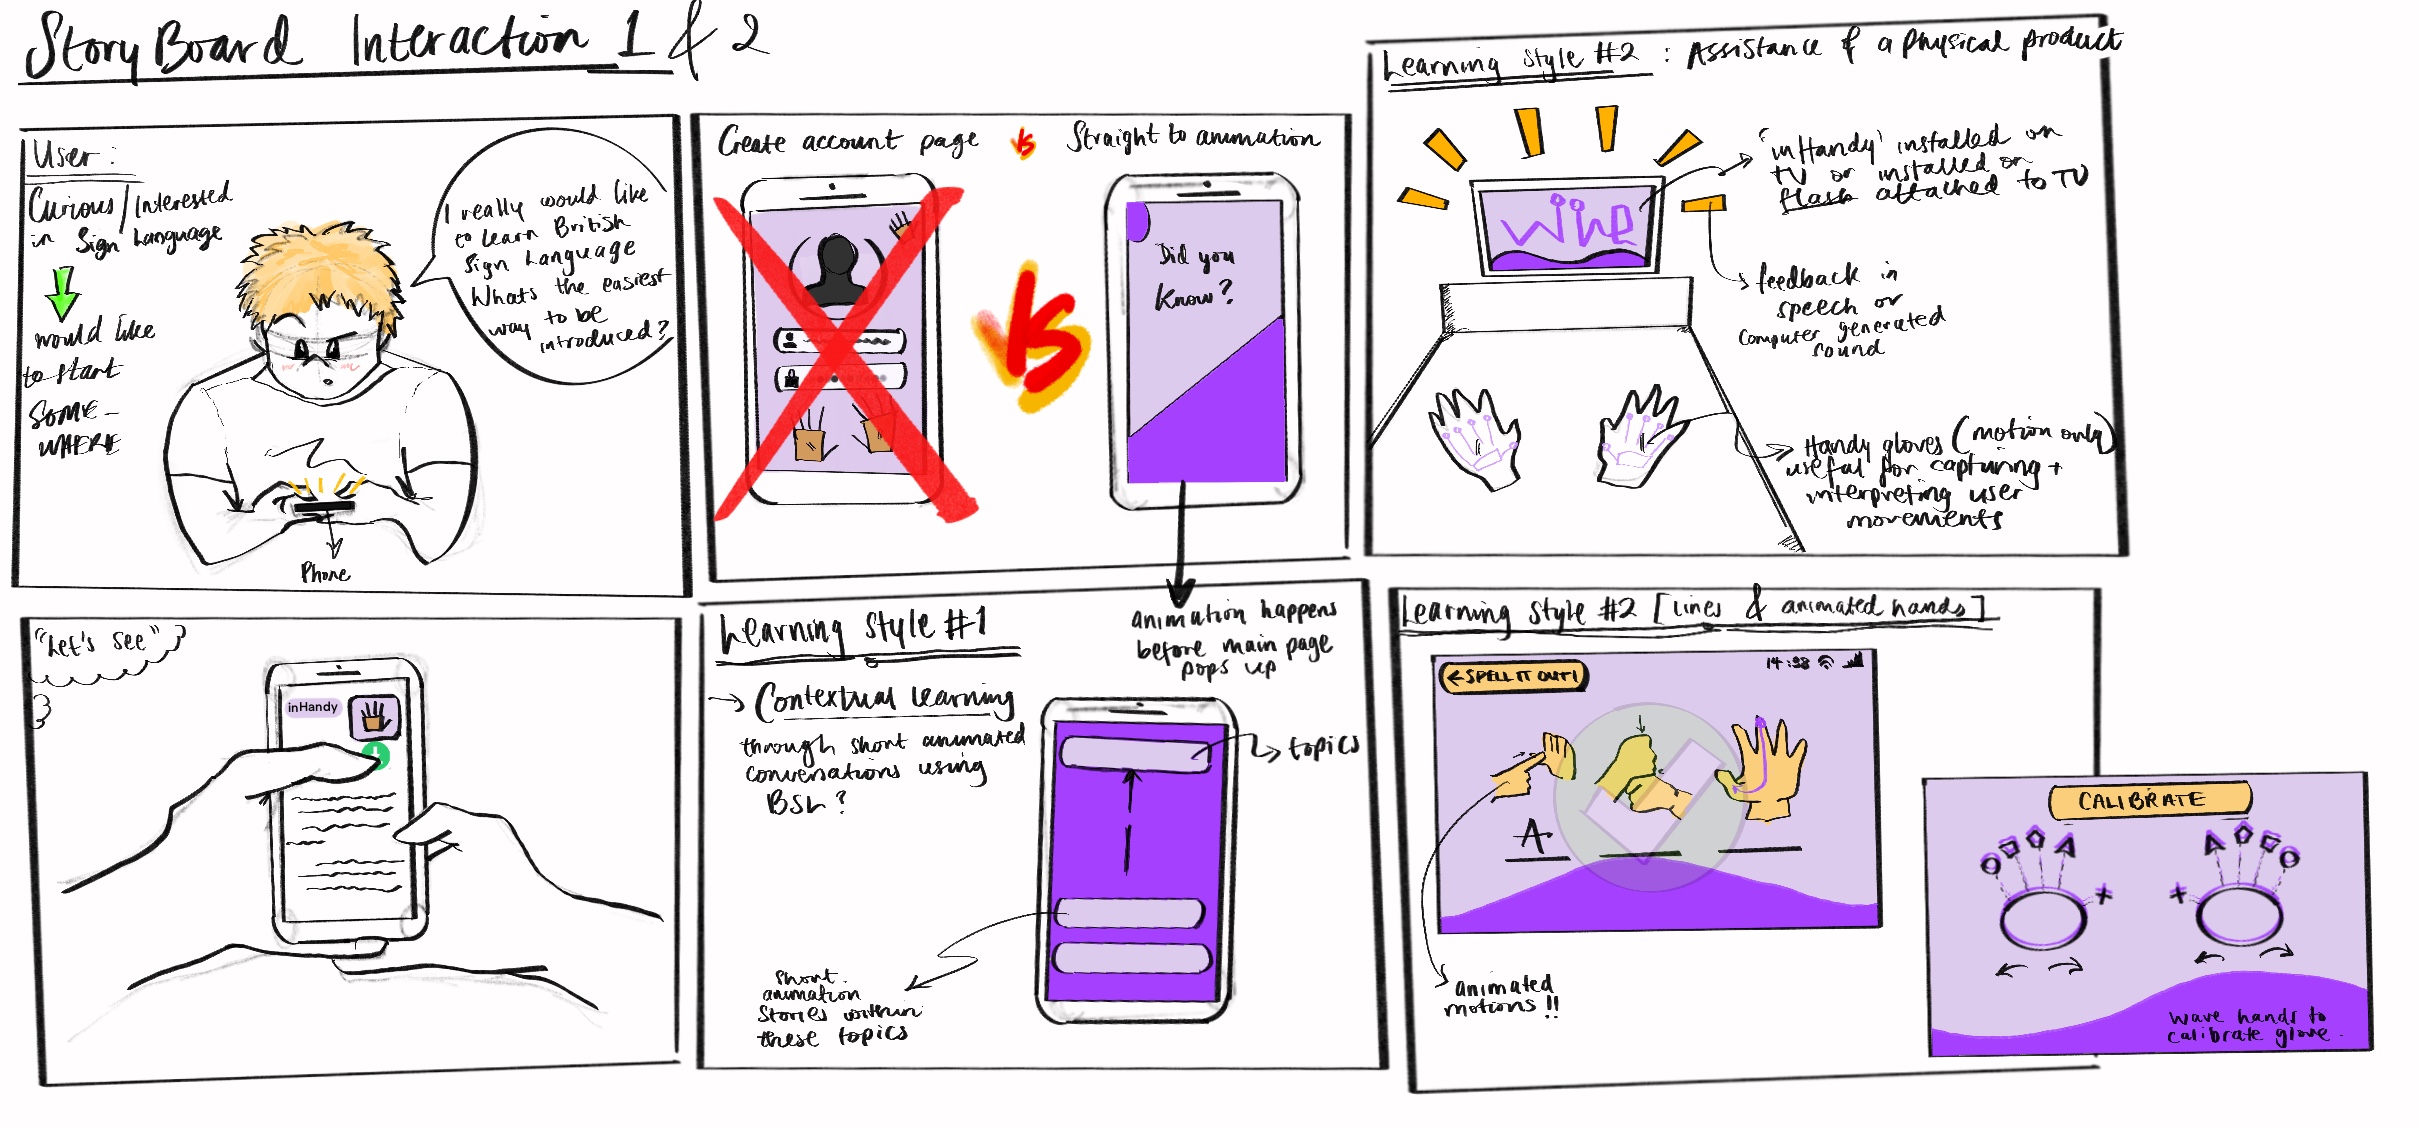 StoryBoard Interaction 1 & 2
User:
Curious/Interested
in Sign Language
would like
to start
SOME-
WHERE
I really would like
to learn British
Sign Language
Whats the easiest
way to be
introduced?
Phone
Create account page vs Straight to animation
VS
Did you
Know?
Learning Style #2 : Assistance of a physical product
'inHandy' installed on
TV or installed on
flash attached to TV
feedback in
speech or
computer generated
sound
Handy gloves (motion only)
useful for capturing +
interpreting user
movements
"Let's see"
inHandy
Learning Style #1
→ Contextual learning
through short animated
conversations using
BSL?
animation happens
before main page
pops up
topics
short
animation
stories within
these topics
Learning Style #2 [lines & animated hands]
← SPELL IT OUT!
A
animated
motions!!
CALIBRATE
wave hands to
calibrate glove.